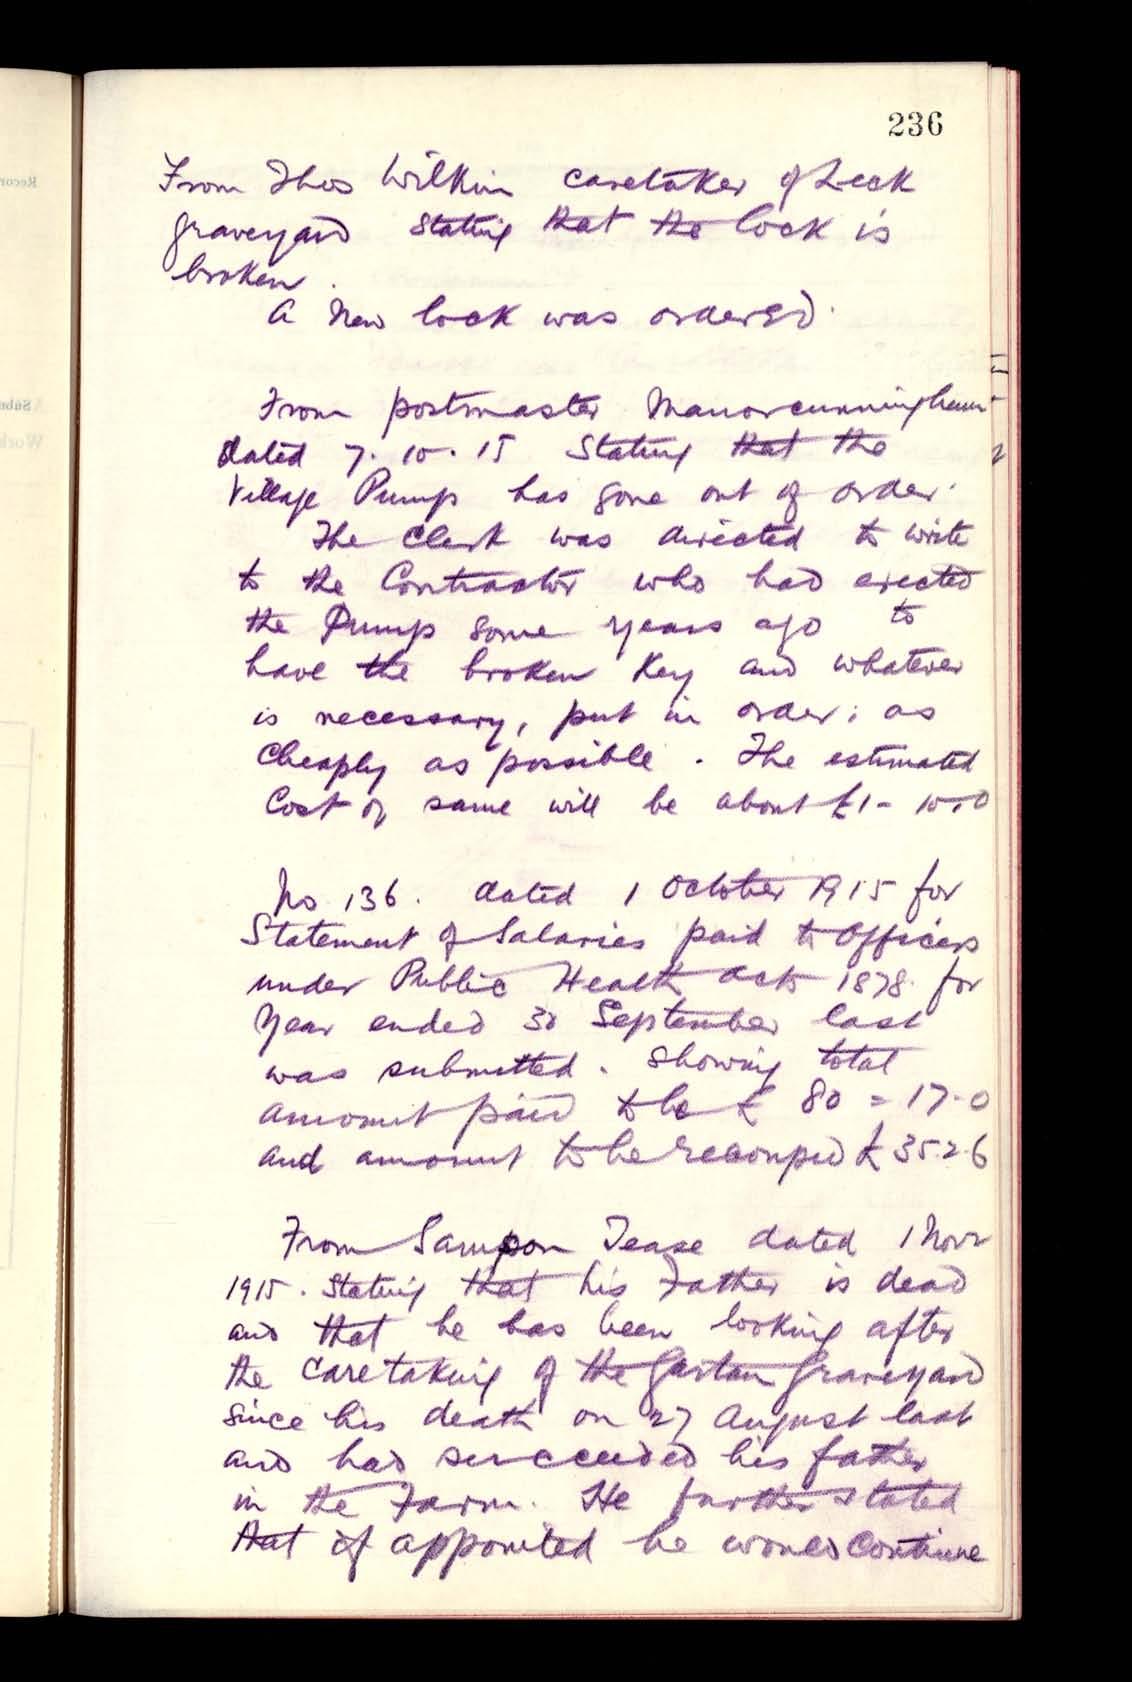 236
From Thos Wilkin caretaker of Leck
graveyard stating that the lock is
broken.
A New lock was ordered.
From postmaster Manorcunningham
dated 7.10.15 Stating that the
Village Pump has gone out of order.
The Clerk was directed to write
to the Contractor who had erected
the Pump some years ago to
have the broken Key and whatever
is necessary, put in order; as
cheaply as possible. The estimated
Cost of same will be about £1-10.0
No 136. dated 1 October 1915 for
Statement of Salaries paid to Officers
under Public Health acts 1878 for
Year ended 30 September last
was submitted. Showing total
amount paid to be £80=17.0
and amount to be recouped £35.2.6
From Sampson Tease dated 1 Novr
1915. Stating that his Father is dead
and that he has been looking after
the caretaking of the Gartan Graveyard
since his death on 27 August last
and had succeeded his father
in the Farm. He further stated
that if appointed he would continue